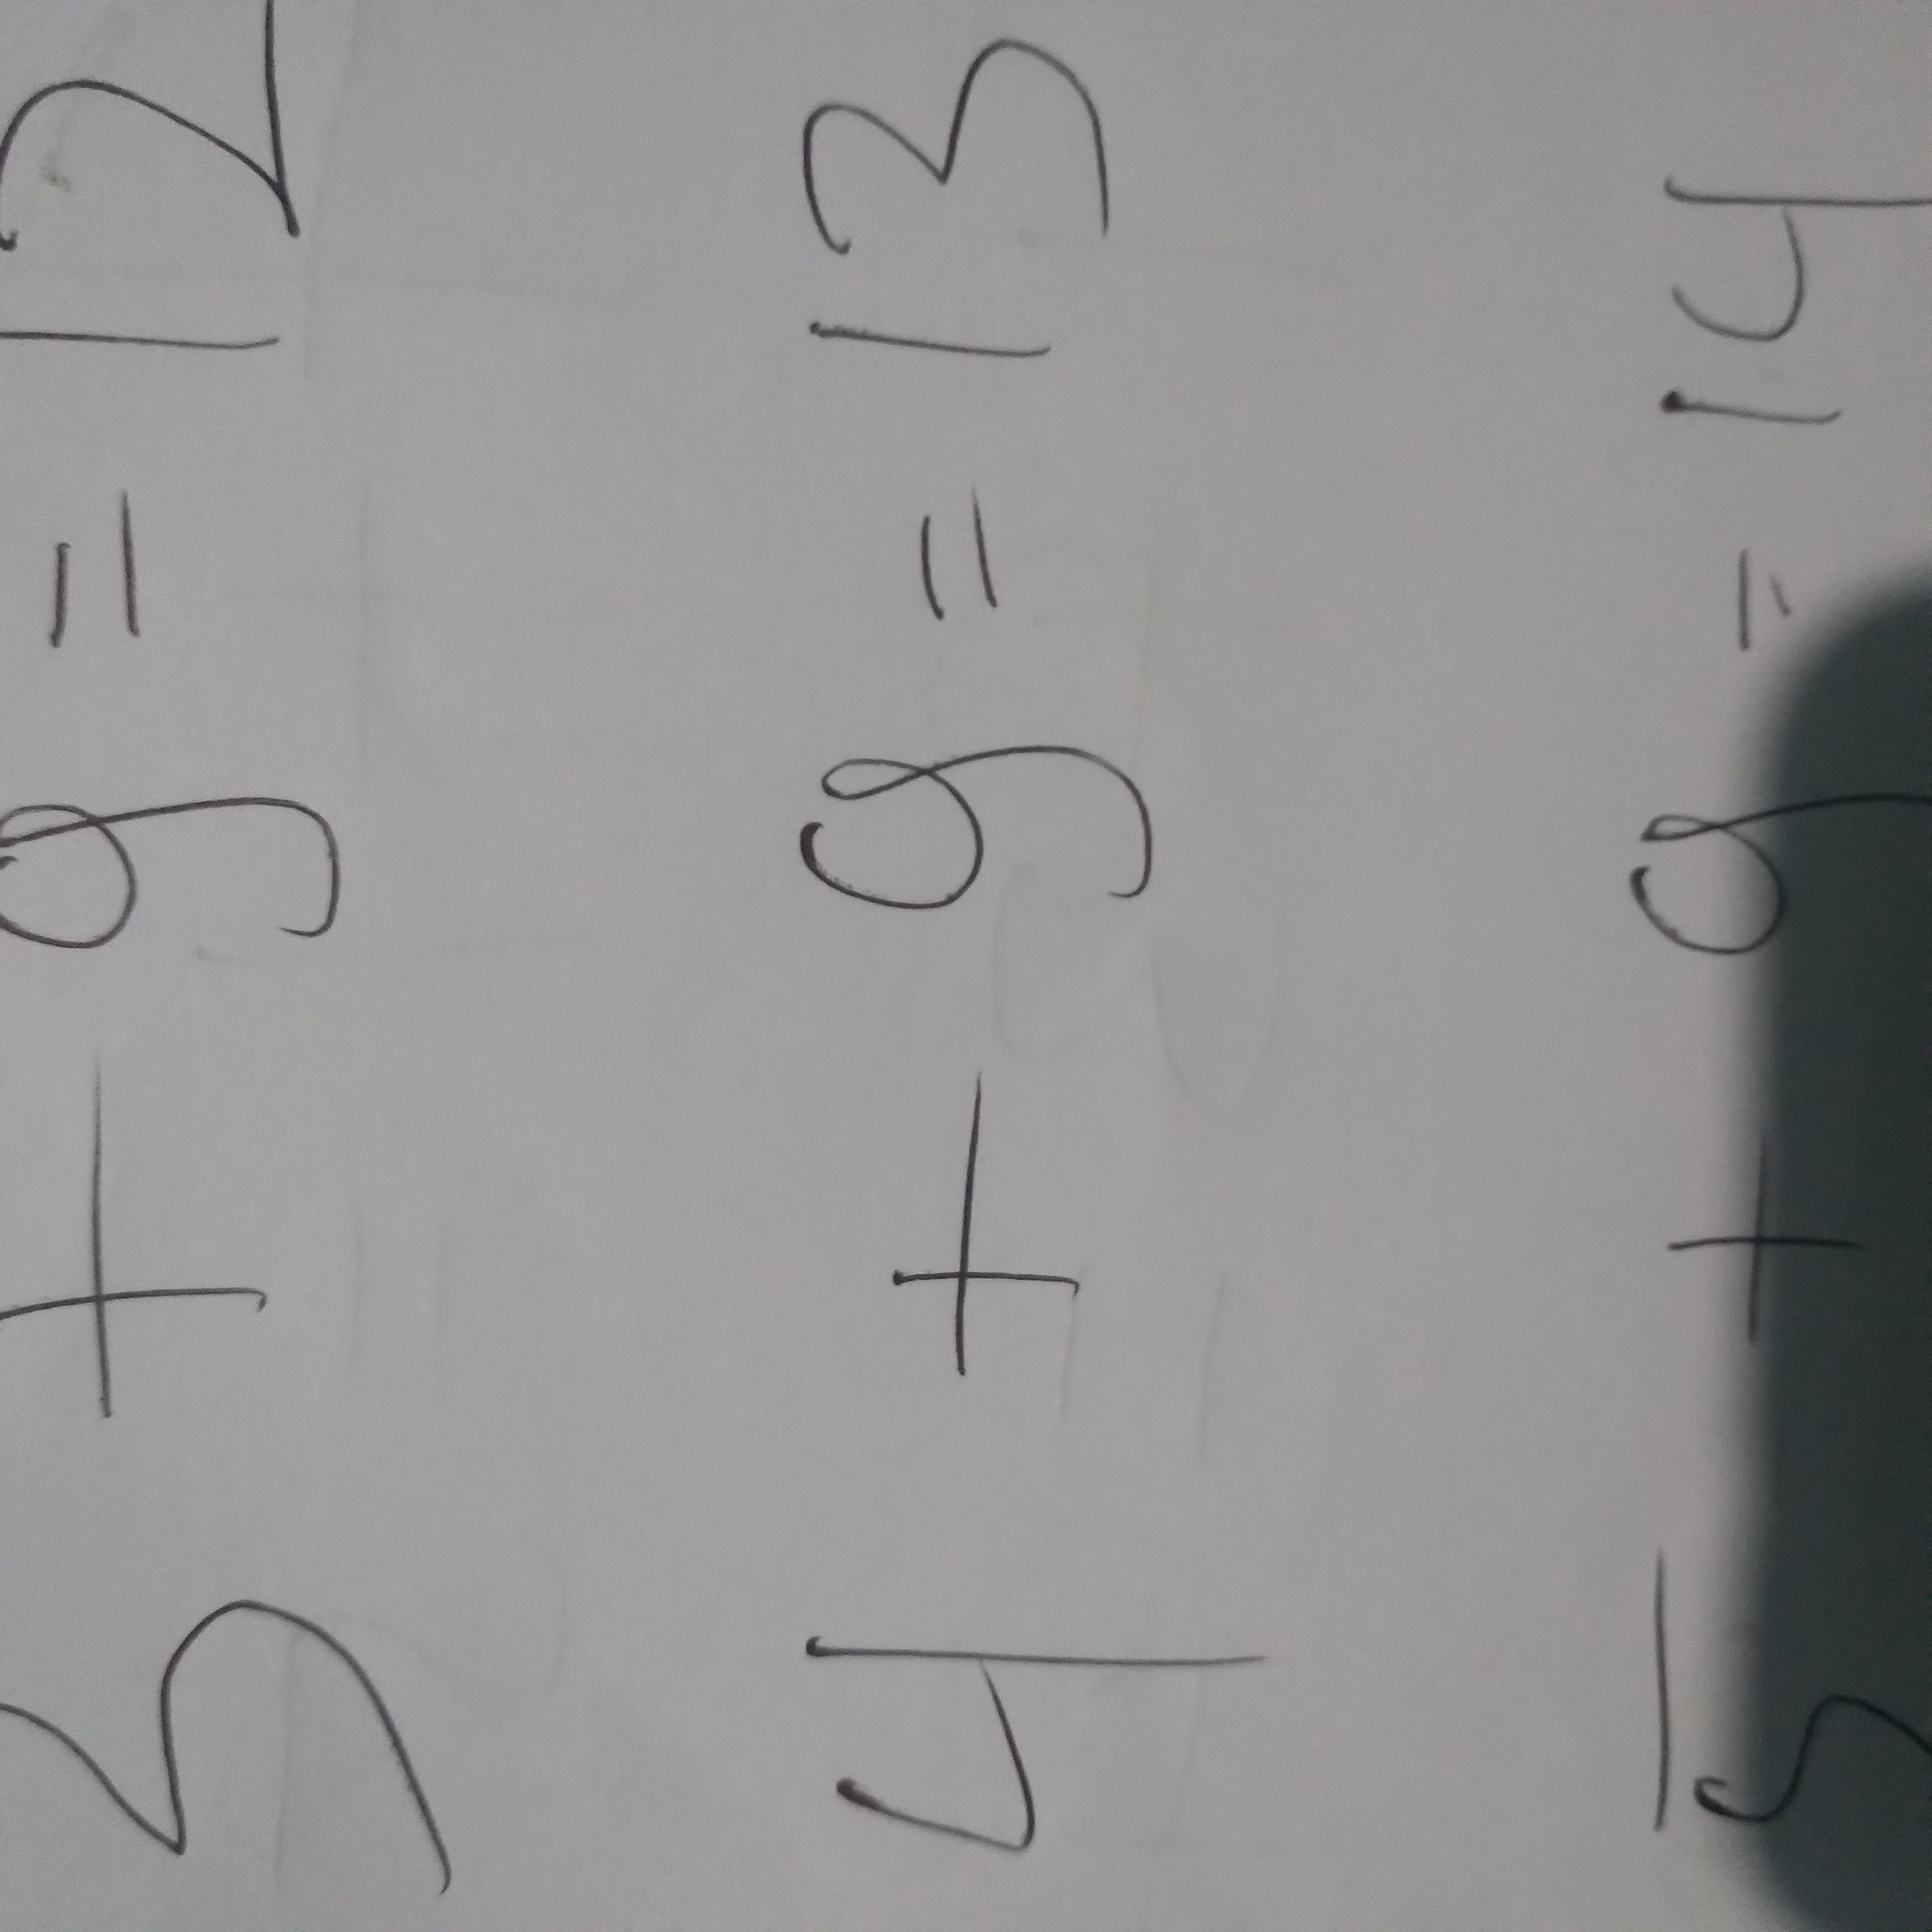 3 + 9 = 12
4 + 9 = 13
5 + 9 = 14